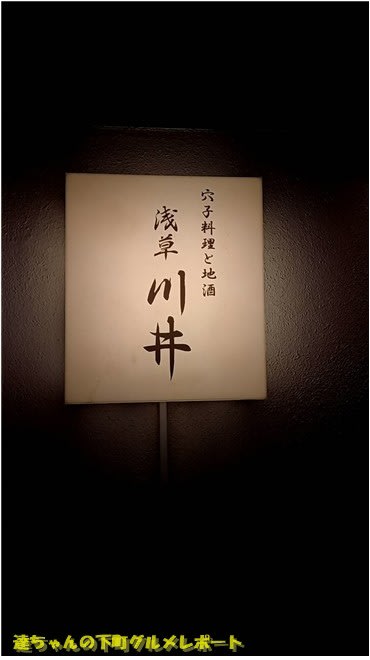 穴子料理と地酒
浅草 川井
達ちゃんの下町グルメレポート